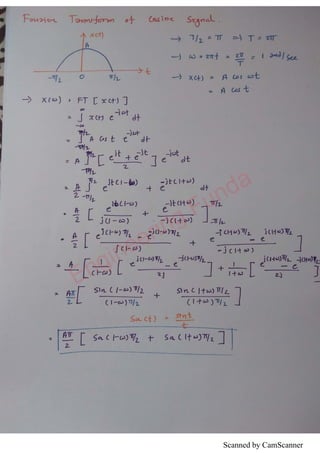 Fourier Transform of Cosine Signal.
x(t)
A
-π/2 0 π/2 → t
→ T/2 = π ⇒ T = 2π
→ ω = 2πf = 2π/T = 1 rad/sec
→ x(t) = A cos ωt
= A cos t
→ X(ω) = FT [ x(t) ]
= ∫_{-∞}^{∞} x(t) e^{-jωt} dt
= ∫_{-π/2}^{π/2} A cos t e^{-jωt} dt
= A ∫_{-π/2}^{π/2} [ (e^{jt} + e^{-jt}) / 2 ] e^{-jωt} dt
= A/2 ∫_{-π/2}^{π/2} e^{jt(1-ω)} + e^{-jt(1+ω)} dt
= A/2 [ e^{jt(1-ω)} / j(1-ω) + e^{-jt(1+ω)} / -j(1+ω) ]_{-π/2}^{π/2}
= A/2 [ (e^{j(1-ω)π/2} - e^{-j(1-ω)π/2}) / j(1-ω) + (e^{-j(1+ω)π/2} - e^{j(1+ω)π/2}) / -j(1+ω) ]
= A [ 1/(1-ω) [ (e^{j(1-ω)π/2} - e^{-j(1-ω)π/2}) / 2j ] + 1/(1+ω) [ (e^{j(1+ω)π/2} - e^{-j(1+ω)π/2}) / 2j ]
= Aπ/2 [ sin(1-ω)π/2 / (1-ω)π/2 + sin(1+ω)π/2 / (1+ω)π/2 ]
Sa(t) = sint / t
= Aπ/2 [ Sa(1-ω)π/2 + Sa(1+ω)π/2 ]
Scanned by CamScanner